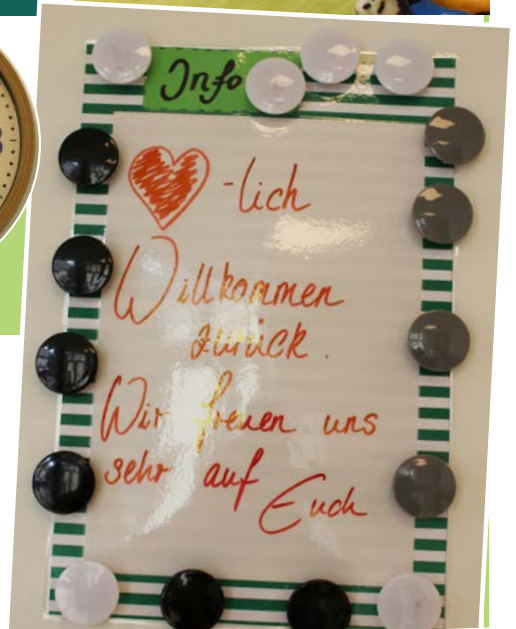 Info
-lich
Willkommen
zurück.
Wir freuen uns
sehr auf
Euch